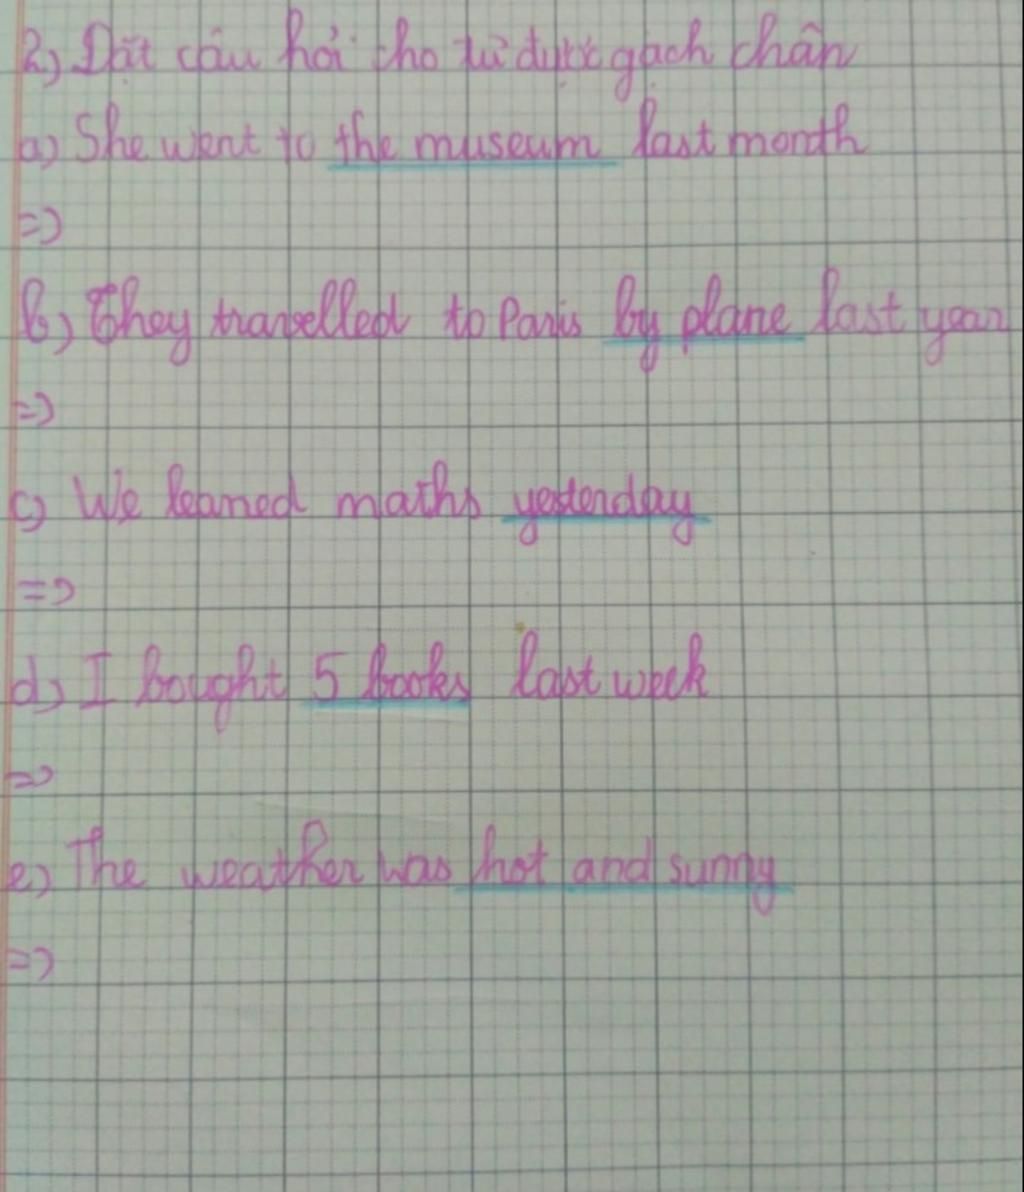 2) Đặt câu hỏi cho từ được gạch chân
a) She went to the museum last month
=>
b) They travelled to Paris by plane last year
=>
c) We learned maths yesterday
=>
d) I bought 5 books last week
=>
e) The weather was hot and sunny
=>